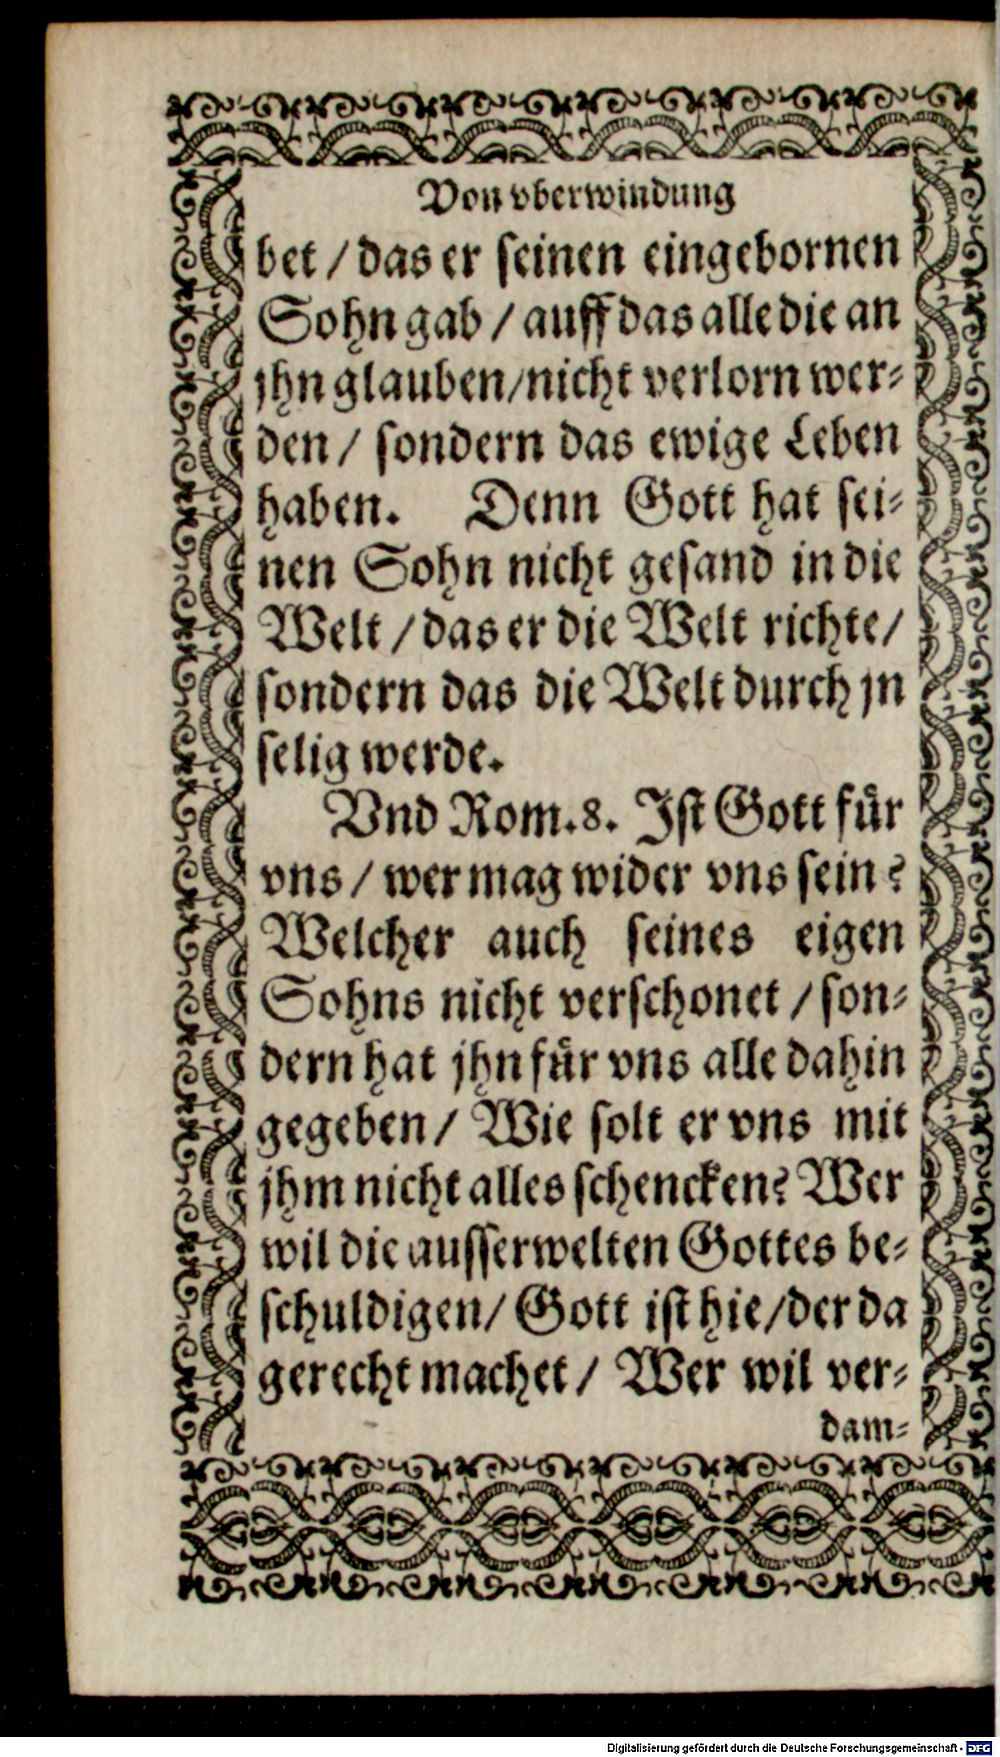 Von vberwindung
bet / das er seinen eingebornen
Sohn gab / auff das alle die an
jhn glauben/nicht verlorn wer-
den / sondern das ewige Leben
haben. Denn Gott hat sei-
nen Sohn nicht gesand in die
Welt / das er die Welt richte/
sondern das die Welt durch jn
selig werde.
Vnd Rom. 8. Ist Gott für
vns / wer mag wider vns sein?
Welcher auch seines eigen
Sohns nicht verschonet / son-
dern hat jhn für vns alle dahin
gegeben / Wie solt er vns mit
jhm nicht alles schencken? Wer
wil die ausserwelten Gottes be-
schuldigen/ Gott ist hie/der da
gerecht machet / Wer wil ver-
dam-
Digitalisierung gefördert durch die Deutsche Forschungsgemeinschaft - DFG